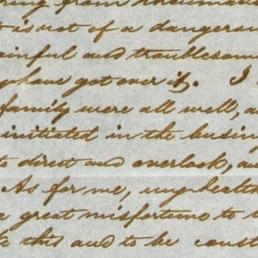 ing from rheuma
t is not of a dangerou
ainful and troublesom
y have got over it. I
family were all well, a
initiated in the busin
t direct and overlook, a
As for me, my health
a great misfortune to
this and to be const